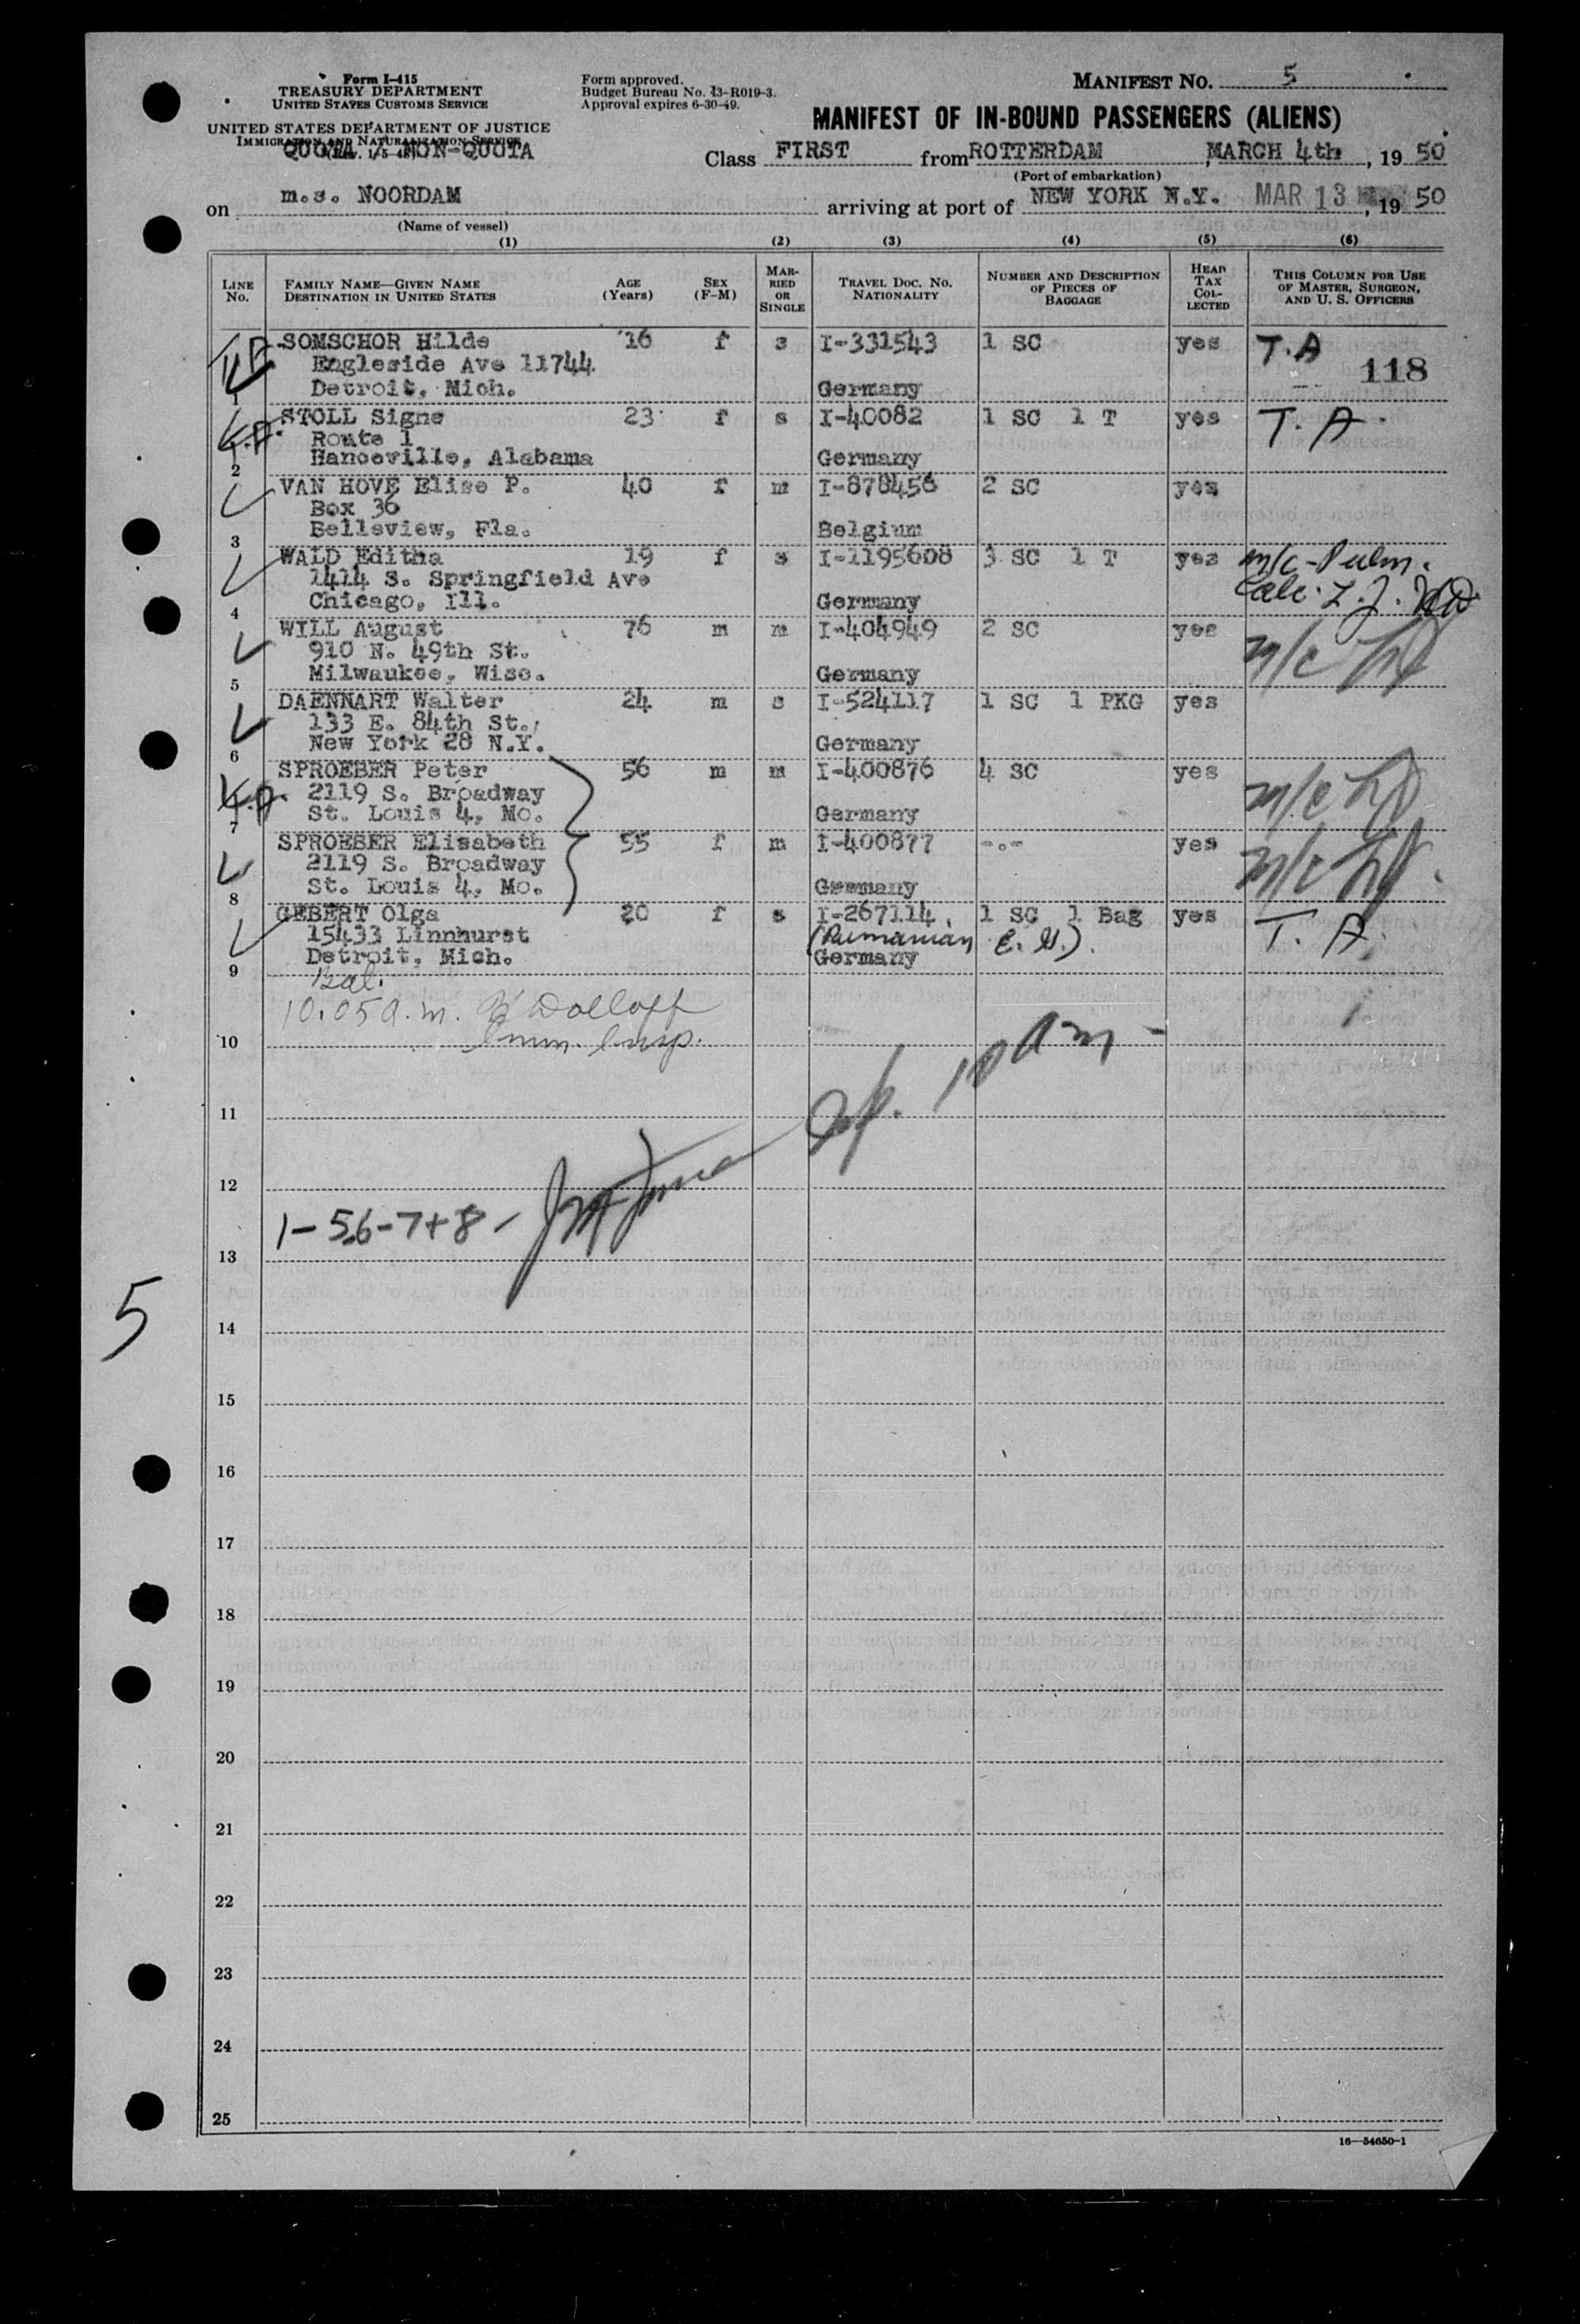 Form I-415
TREASURY DEPARTMENT
UNITED STATES CUSTOMS SERVICE
UNITED STATES DEPARTMENT OF JUSTICE
IMMIGRATION AND NATURALIZATION SERVICE
QUOTA / NON-QUOTA
Form approved.
Budget Bureau No. 43-R019-3.
Approval expires 6-30-49.
MANIFEST NO. 5
MANIFEST OF IN-BOUND PASSENGERS (ALIENS)
Class FIRST from ROTTERDAM, MARCH 4th, 19 50
(Port of embarkation)
on m.s. NOORDAM arriving at port of NEW YORK N.Y. MAR 13, 19 50
(Name of vessel)
(1) (2) (3) (4) (5) (6)
LINE No. FAMILY NAME—GIVEN NAME DESTINATION IN UNITED STATES AGE (Years) SEX (F-M) MARRIED OR SINGLE TRAVEL DOC. NO. NATIONALITY NUMBER AND DESCRIPTION OF PIECES OF BAGGAGE HEAD TAX COLLECTED THIS COLUMN FOR USE OF MASTER, SURGEON, AND U. S. OFFICERS
SOMSCHOR Hilde 16 f s I-331543 1 SC yes T.A
Engleside Ave 11744 118
1 Detroit, Mich. Germany
STOLL Signe 23 f s I-40082 1 SC 1 T yes T. A.
Route 1
2 Hanceville, Alabama Germany
VAN HOVE Elise P. 40 f m I-878456 2 SC yes
Box 36
3 Belleview, Fla. Belgium
WALD Editha 19 f s I-1195608 3 SC 1 T yes m/c-Pulm.
1414 S. Springfield Ave Calc.
4 Chicago, Ill. Germany
WILL August 76 m m I-404949 2 SC yes m/c
910 N. 49th St.
5 Milwaukee, Wisc. Germany
DAENNART Walter 24 m s I-524117 1 SC 1 PKG yes
133 E. 84th St.,
6 New York 28 N.Y. Germany
SPROEBER Peter 56 m m I-400876 4 SC yes m/c
2119 S. Broadway
7 St. Louis 4, Mo. Germany
SPROEBER Elisabeth 55 f m I-400877 -.- yes m/c
2119 S. Broadway
8 St. Louis 4, Mo. Germany
GEBERT Olga 20 f s I-267114 1 SC 1 Bag yes T. A.
15433 Linnhurst (Rumanian
9 Detroit, Mich. Germany
Bal.
10.05 a.m. Dolloff
10 Imm. Insp.
10 AM
11
12
1-5,6-7+8-
13
5
14
15
16
17
18
19
20
21
22
23
24
25
16—54650-1